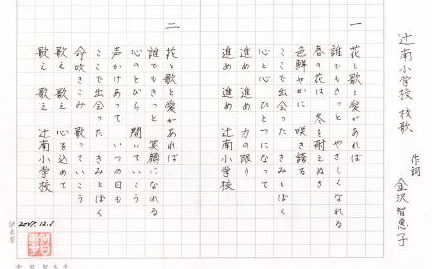 辻南小学校 校歌
作詞 金沢智恵子
一
花と歌と愛があれば
誰でもきっと やさしくなれる
春の花は 冬を耐えぬき
色鮮やかに 咲き誇る
ここで出会った きみとぼく
心と心 ひとつになって
進め 進め 力の限り
進め 進め 辻南小学校
二
花と歌と愛があれば
誰でもきっと 笑顔になれる
心のとびら 開いていこう
声かけあって いつの日も
ここで出会った きみとぼく
命吹きこみ 歌っていこう
歌え 歌え 心を込めて
歌え 歌え 辻南小学校
2007.12.1